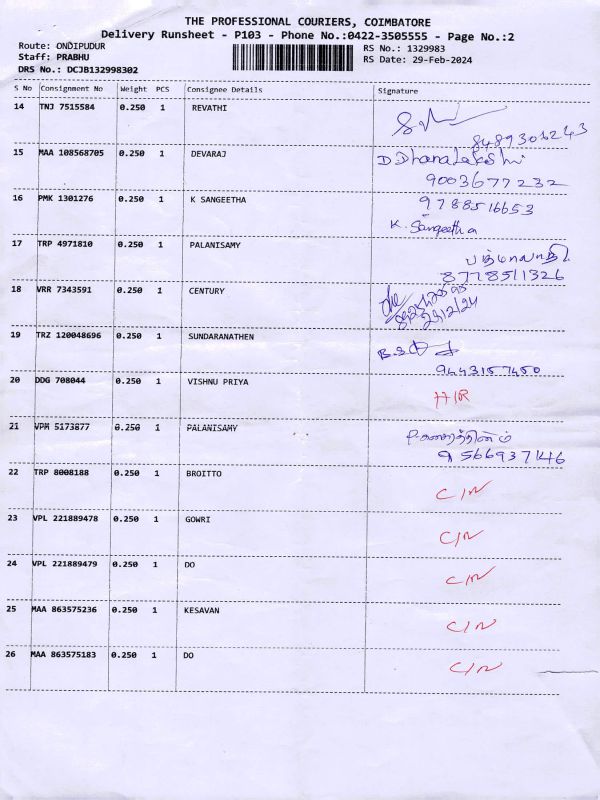 THE PROFESSIONAL COURIERS, COIMBATORE
Delivery Runsheet - P103 - Phone No.:0422-3505555 - Page No.:2
Route: ONDIPUDUR
RS No.: 1329983
Staff: PRABHU
RS Date: 29-Feb-2024
DRS No.: DCJB132998302
S No Consignment No Weight PCS Consignee Details Signature
14 TNJ 7515584 0.250 1 REVATHI
8489306243
15 MAA 108568705 0.250 1 DEVARAJ D Dhanalakshi
9003677232
16 PMK 1301276 0.250 1 K SANGEETHA 9788516653
K. Sangeetha
17 TRP 4971810 0.250 1 PALANISAMY
8778511326
18 VRR 7343591 0.250 1 CENTURY
19 TRZ 120048696 0.250 1 SUNDARANATHEN
9443157450
20 DDG 708044 0.250 1 VISHNU PRIYA HIR
21 VPM 5173877 0.250 1 PALANISAMY
9566937146
22 TRP 8008188 0.250 1 BROITTO C/N
23 VPL 221889478 0.250 1 GOWRI C/N
24 VPL 221889479 0.250 1 DO C/N
25 MAA 863575236 0.250 1 KESAVAN C/N
26 MAA 863575183 0.250 1 DO C/N